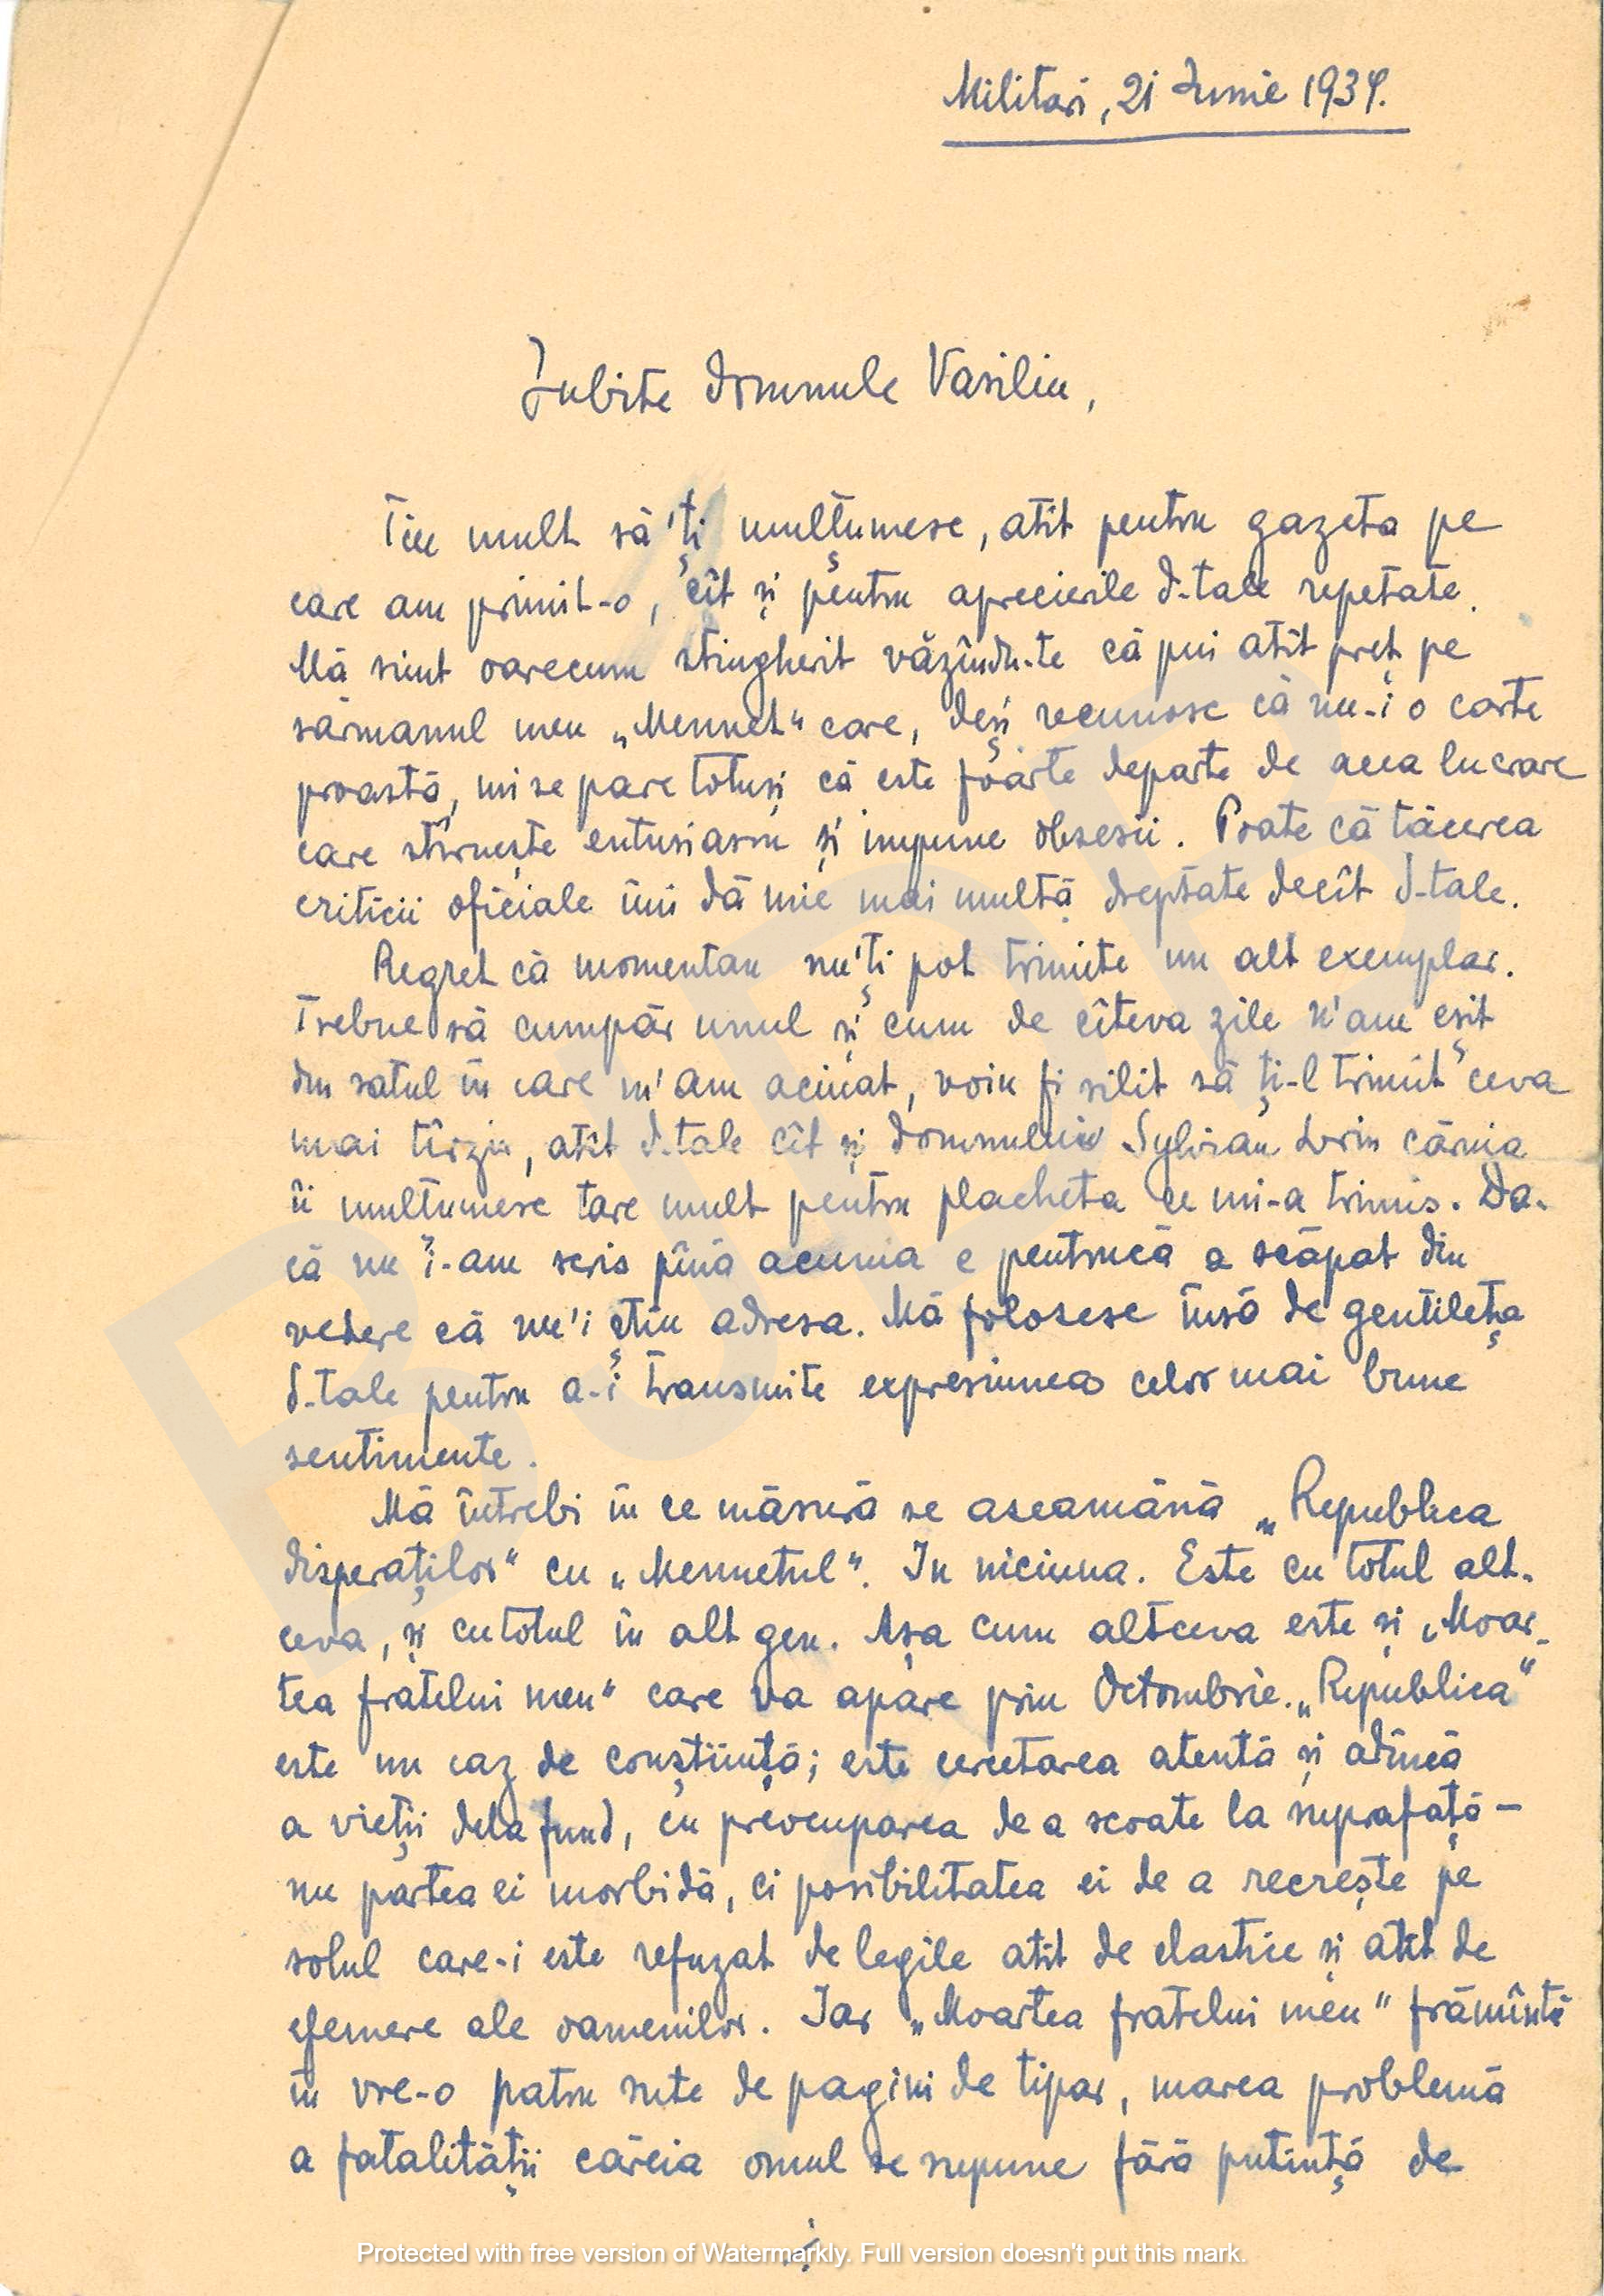 Militari, 21 Iunie 1934.
Iubite domnule Vasiliu,
Țiu mult să'ți mulțumesc, atît pentru gazeta pe
care am primit-o, cît și pentru aprecierile d-tale repetate.
Mă simt oarecum stingherit văzîndu-te că pui atît preț pe
sărmanul meu „Menuet" care, deși recunosc că nu-i o carte
proastă, mi se pare totuși că este foarte departe de acea lucrare
care stîrnește entusiasm și impune obsesii. Poate că tăcerea
criticii oficiale îmi dă mie mai multă dreptate decît d-tale.
Regret că momentan nu'ți pot trimite un alt exemplar.
Trebue să cumpăr unul și cum de cîteva zile n'am eșit
din satul în care m'am aciuat, voiu fi silit să ți-l trimit ceva
mai tîrziu, atît d-tale cît și domnului Sylvian Lorin căruia
îi mulțumesc tare mult pentru placheta ce mi-a trimis. Da-
că nu i-am scris pînă acuma e pentrucă a scăpat din
vedere că nu'i știu adresa. Mă folosesc însă de gentileța
d-tale pentru a-i transmite expresiunea celor mai bune
sentimente.
Mă întrebi în ce măsură se aseamănă „Republica
disperaților" cu „Menuetul". In niciuna. Este cu totul alt-
ceva, și cu totul în alt gen. Așa cum altceva este și „Moar-
tea fratelui meu" care va apare prin Octombrie. „Republica"
este un caz de conștiință; este cercetarea atentă și adîncă
a vieții dela fund, cu preocuparea de a scoate la suprafață –
nu partea ei morbidă, ci posibilitatea ei de a recrește pe
solul care-i este refuzat de legile atît de elastice și atît de
efemere ale oamenilor. Iar „Moartea fratelui meu" frămîntă
în vre-o patru sute de pagini de tipar, marea problemă
a fatalității căreia omul se supune fără putință de
./.
Protected with free version of Watermarkly. Full version doesn't put this mark.